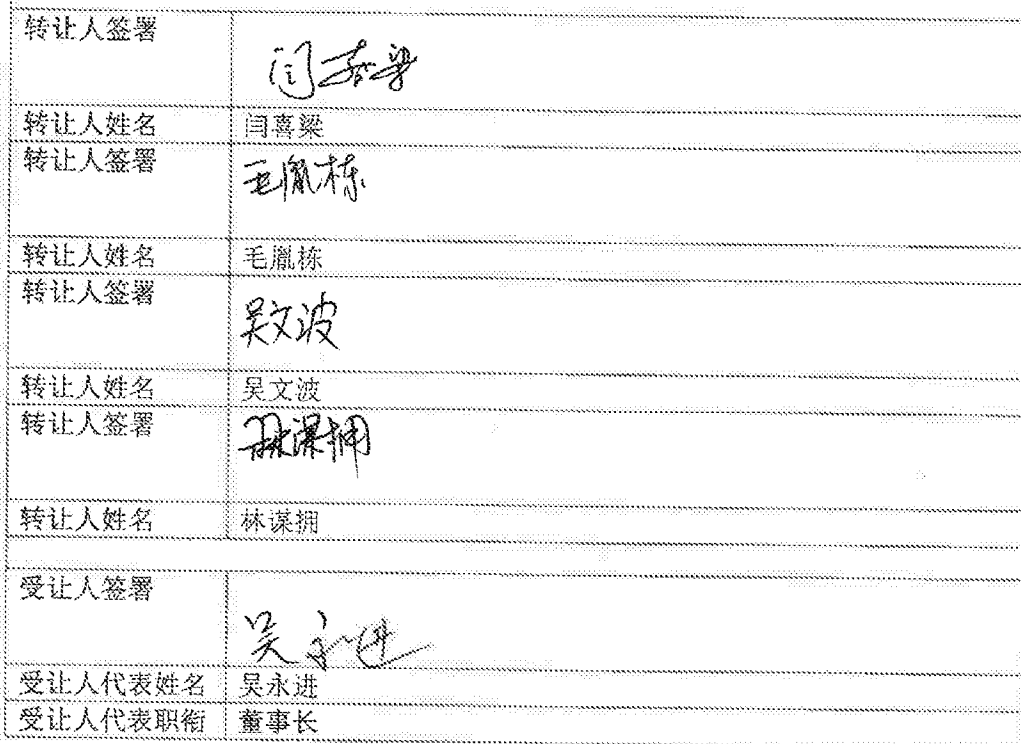 转让人签署 闫喜梁
转让人姓名 闫喜梁
转让人签署 毛胤栋
转让人姓名 毛胤栋
转让人签署 吴文波
转让人姓名 吴文波
转让人签署 林谋拥
转让人姓名 林谋拥
受让人签署 吴永进
受让人代表姓名 吴永进
受让人代表职衔 董事长